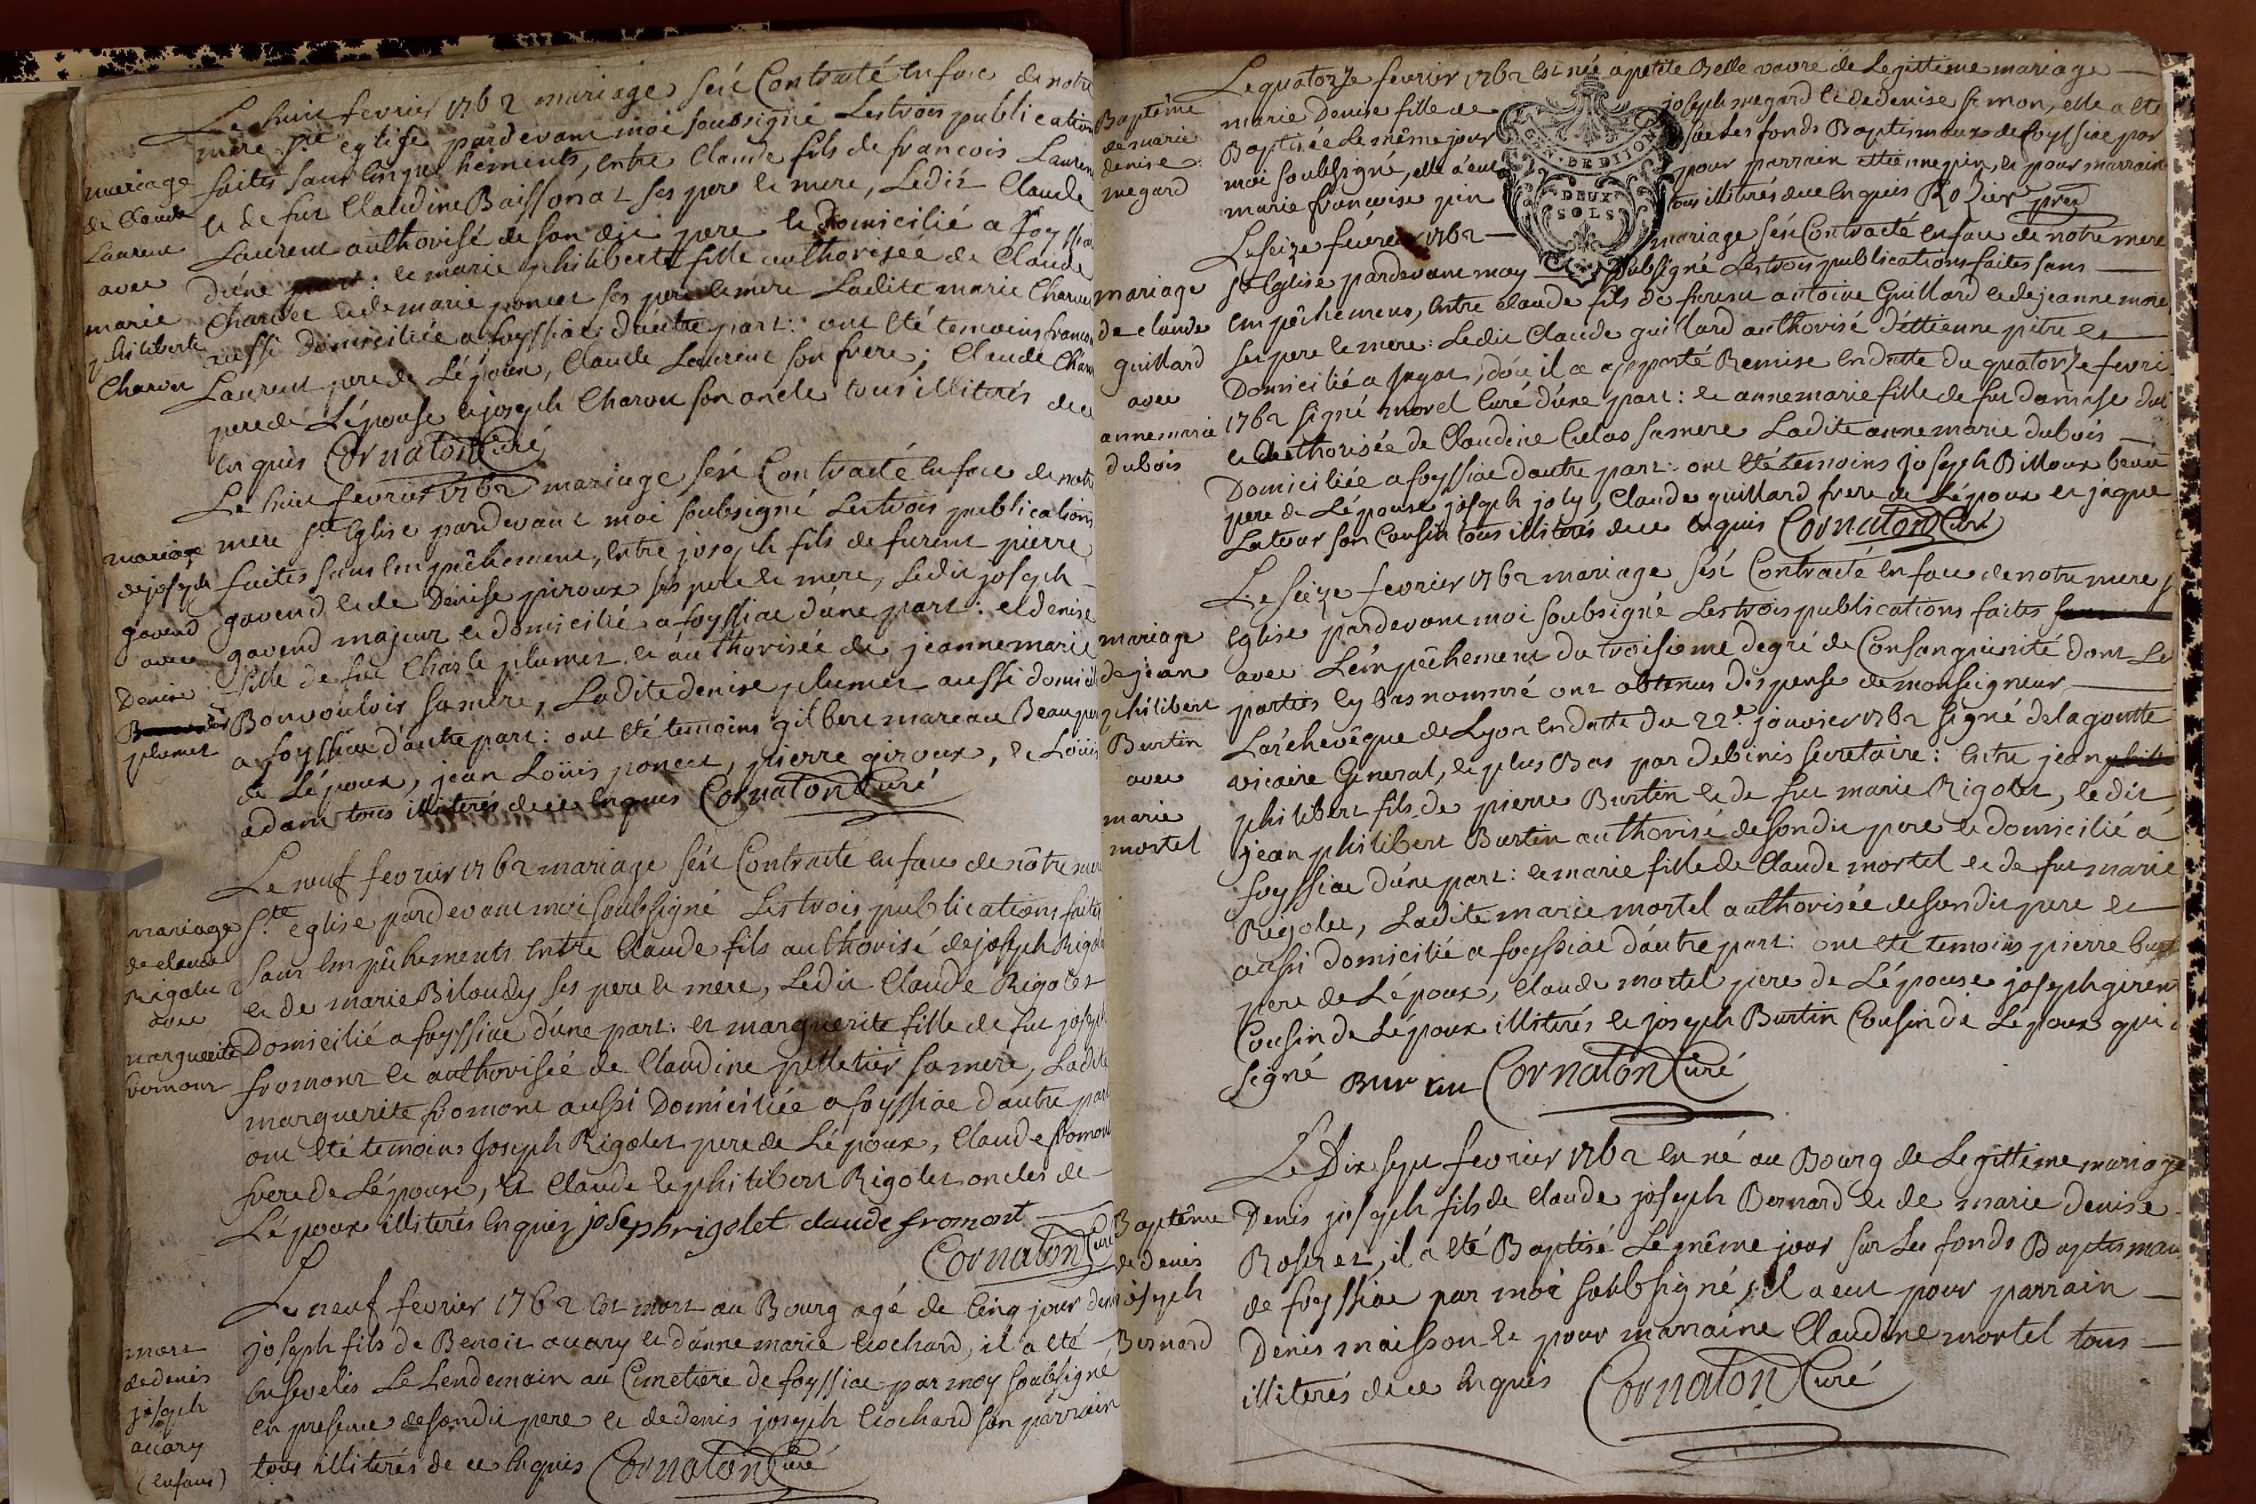 Le huit fevrier 1762 mariage s'ést Contracté en face de notre
mere Ste eglise pardevant moi soubsigné Les trois publications
mariage
de Claude
Laurent
avec
marie
philiberte
Charvet
faites sans empechements, entre Claude fils de francois Laurent
et de fut Claudine Baissonat ses pere et mere, Ledit Claude
Laurent authorisé de son dit pere et Domicilié a foyssiac
d'une part: et marie philiberte fille authorisée de Claude
Charvet et de marie poncet ses pere et mere Ladite marie Charvet
aussi Domiciliée a foyssiac d'autre part: ont eté temoins francois
Laurent pere de L'époux, Claude Laurent son frere; Claude Charvet
pere de L'épouse et joseph Charvet son oncle tous illiterés de ce
enquis Cornaton Curé
Le huit fevrier 1762 mariage s'ést Contracté en face de notre
mere Ste Eglise pardevant moi soubsigné Les trois publications
mariage
de joseph
gavend
avec
Denise
plumet
faites sans empêchement, entre joseph fils de furent pierre
gavend et de Denise piroux ses pere et mere, Ledit joseph
gavend majeur et domicilié a foyssiac d'une part: et denise
fille de fut Charle plumet et authorisée de jeanne marie
Bonvouloir sa mere, Ladite denise plumet aussi domiciliée
a foyssiac d'autre part: ont eté temoins gilbert mareau Beau pere
de L'époux, jean Loüis poncet, pierre giroux, et Loüis
adam tous illiterés de ce enquis Cornaton Curé
Le neuf fevrier 1762 mariage s'ést Contracté en face de nôtre mere
Ste eglise pardevant moi soubsigné Les trois publications faites
mariage
de claude
Rigolet
avec
marguerite
fromont
sans empêchements entre Claude fils authorisé de joseph Rigolet
et de marie Biloudy ses pere et mere, Ledit Claude Rigolet
Domicilié a foyssiac d'une part: et marguerite fille de fut joseph
fromont et authorisée de Claudine pelletier sa mere, Ladite
marguerite fromont aussi Domiciliée a foyssiac d'autre part
ont eté temoins Joseph Rigolet pere de L'époux, Claude fromont
frere de L'épouse, et Claude et philibert Rigolet oncles de
L'époux illiterés enquis josephrigolet claude fromont
Cornaton Curé
Le neuf fevrier 1762 est mort au Bourg agé de Cinq jour denis
mort
de denis
joseph
avary
(enfant)
joseph fils de Benoit avary et d'anne marie Cochard, il a eté
ensevelis Le Lendemain au Cimetiere de foyssiac par moy soubsigné
en presence de son dit pere et de denis joseph Cochard son parrain
tous illiterés de ce enquis Cornaton Curé
Le quatorze fevrier 1762 est née a petite Belle vavre de Legittime mariage
Baptême
de marie
denise
megard
marie Denise fille de joseph megard et de denise simon, elle a eté
Baptisée Le même jour sur Les fonds Baptismaux de foyssiac par
moi soubsigné, elle a eut pour parrain ettienne pin, et pour marraine
marie françoise pin tous illiterés de ce enquis Rozier
GEN. DE DIJON
DEUX
SOLS
Le seize fevrier 1762 mariage s'ést Contracté en face de notre mere
mariage
de claude
guillard
avec
anne marie
dubois
Ste Eglise pardevant moy soubsigné Les trois publications faites sans
empêchemens, entre claude fils de furent antoine Guillard et de jeanne morel
ses pere et mere: Ledit Claude guillard authorisé d'ettienne pitre et
Domicilié a Jayat, d'où il a apporté Remise en datte du quatorze fevrier
1762 signé morel Curé d'une part: et anne marie fille de fut
et authorisée de Claudine sa mere Ladite anne marie dubois
Domiciliée a foyssiac d'autre part: ont eté temoins Joseph Billoux beau
pere de L'épouse joseph joly, Claude guillard frere de L'époux et jaque
Latour son Cousin tous illiterés de ce enquis Cornaton Curé
Le seize fevrier 1762 mariage s'ést Contracté en face de notre mere
mariage
de jean
philibert
Burtin
avec
marie
mortel
Eglise pardevant moi soubsigné Les trois publications faites
avec L'émpêchement du troisieme degré de Consanguinité dont Les
parties cy bas nommé ont obtenus dispense de monseigneur
L'archevêque de Lyon en datte du 22e janvier 1762 signé delagoutte
vicaire General, et plus Bas par debinis secretaire: entre jean
philibert fils de pierre Burtin et de fut marie Rigolet, Ledit
jean philibert Burtin authorisé de son dit pere et domicilié á
foyssiac d'une part: et marie fille de Claude mortel et de fut marie
Rigolet, Ladite marie mortel authorisée de son dit pere et
aussi domicilié a foyssiac d'autre part: ont eté temoins pierre burtin
pere de L'époux, Claude mortel pere de L'épouse joseph
Cousin de L'époux illiterés et joseph Burtin Cousin de L'époux qui a
signé Cornaton Curé
Le Dix sept fevrier 1762 est né au Bourg de Legittime mariage
Baptême
de denis
joseph
Bernard
Denis joseph fils de Claude joseph Bernard et de marie denise
il a eté Baptisé Le même jour sur Les fonds Baptismaux
de foyssiac par moi soubsigné, il a eut pour parrain
Denis maisson et pour marraine Claudine mortel tous
illiterés de ce enquis Cornaton Curé